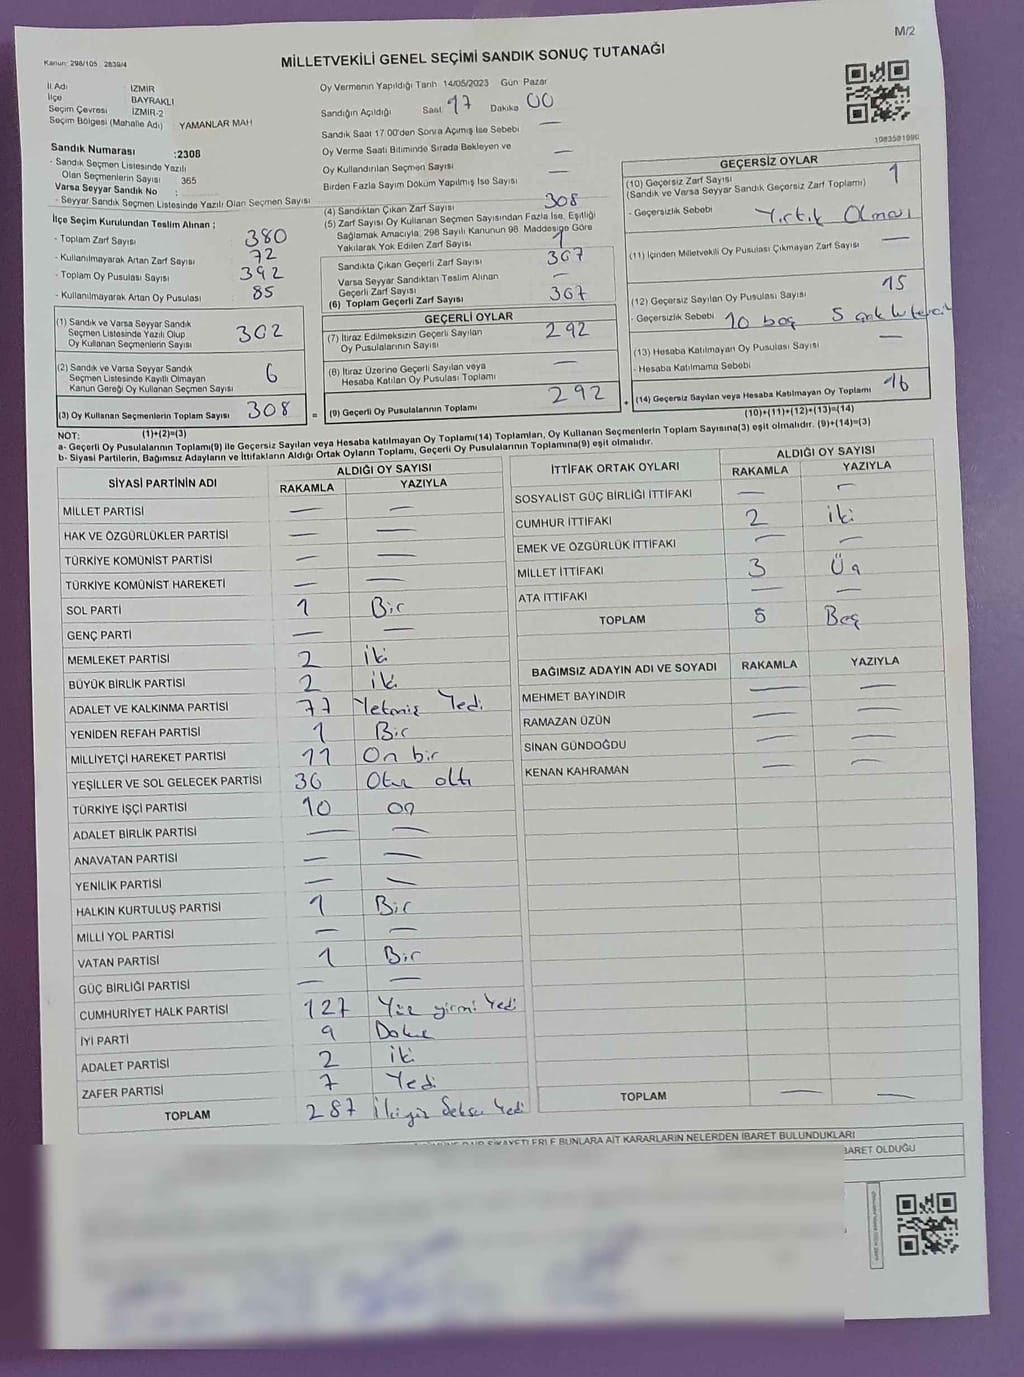 M/2
Kanun: 298/105 2839/4
MİLLETVEKİLİ GENEL SEÇİMİ SANDIK SONUÇ TUTANAĞI
İl Adı İZMİR
İlçe BAYRAKLI
Seçim Çevresi İZMİR-2
Seçim Bölgesi (Mahalle Adı) YAMANLAR MAH
Sandık Numarası :2308
- Sandık Seçmen Listesinde Yazılı
Olan Seçmenlerin Sayısı : 365
Varsa Seyyar Sandık No :
- Seyyar Sandık Seçmen Listesinde Yazılı Olan Seçmen Sayısı
İlçe Seçim Kurulundan Teslim Alınan ;
- Toplam Zarf Sayısı 380
- Kullanılmayarak Artan Zarf Sayısı 72
- Toplam Oy Pusulası Sayısı 392
- Kullanılmayarak Artan Oy Pusulası 85
(1) Sandık ve Varsa Seyyar Sandık
Seçmen Listesinde Yazılı Olup
Oy Kullanan Seçmenlerin Sayısı 302
(2) Sandık ve Varsa Seyyar Sandık
Seçmen Listesinde Kayıtlı Olmayan
Kanun Gereği Oy Kullanan Seçmen Sayısı 6
(3) Oy Kullanan Seçmenlerin Toplam Sayısı 308 =
(1)+(2)=(3)
Oy Vermenin Yapıldığı Tarih 14/05/2023 Gün Pazar
Sandığın Açıldığı Saat 17 Dakika 00
Sandık Saat 17.00'den Sonra Açılmış İse Sebebi —
Oy Verme Saati Bitiminde Sırada Bekleyen ve
Oy Kullandırılan Seçmen Sayısı —
Birden Fazla Sayım Döküm Yapılmış İse Sayısı —
(4) Sandıktan Çıkan Zarf Sayısı 308
(5) Zarf Sayısı Oy Kullanan Seçmen Sayısından Fazla İse, Eşitliği
Sağlamak Amacıyla, 298 Sayılı Kanunun 98. Maddesine Göre
Yakılarak Yok Edilen Zarf Sayısı 1
Sandıkta Çıkan Geçerli Zarf Sayısı 307
Varsa Seyyar Sandıktan Teslim Alınan
Geçerli Zarf Sayısı —
(6) Toplam Geçerli Zarf Sayısı 307
GEÇERLİ OYLAR
(7) İtiraz Edilmeksizin Geçerli Sayılan
Oy Pusulalarının Sayısı 292
(8) İtiraz Üzerine Geçerli Sayılan veya
Hesaba Katılan Oy Pusulası Toplamı —
(9) Geçerli Oy Pusulalarının Toplamı 292 +
1083581890
GEÇERSİZ OYLAR
(10) Geçersiz Zarf Sayısı
(Sandık ve Varsa Seyyar Sandık Geçersiz Zarf Toplamı) 1
- Geçersizlik Sebebi Yırtık Olması
(11) İçinden Milletvekili Oy Pusulası Çıkmayan Zarf Sayısı —
(12) Geçersiz Sayılan Oy Pusulası Sayısı 15
- Geçersizlik Sebebi 10 boş 5
(13) Hesaba Katılmayan Oy Pusulası Sayısı —
- Hesaba Katılmama Sebebi
(14) Geçersiz Sayılan veya Hesaba Katılmayan Oy Toplamı 16
(10)+(11)+(12)+(13)=(14)
NOT:
a- Geçerli Oy Pusulalarının Toplamı(9) ile Geçersiz Sayılan veya Hesaba katılmayan Oy Toplamı(14) Toplamları, Oy Kullanan Seçmenlerin Toplam Sayısına(3) eşit olmalıdır. (9)+(14)=(3)
b- Siyasi Partilerin, Bağımsız Adayların ve İttifakların Aldığı Ortak Oyların Toplamı, Geçerli Oy Pusulalarının Toplamına(9) eşit olmalıdır.
SİYASİ PARTİNİN ADI ALDIĞI OY SAYISI
RAKAMLA YAZIYLA
MİLLET PARTİSİ — —
HAK VE ÖZGÜRLÜKLER PARTİSİ — —
TÜRKİYE KOMÜNİST PARTİSİ — —
TÜRKİYE KOMÜNİST HAREKETİ — —
SOL PARTİ 1 Bir
GENÇ PARTİ — —
MEMLEKET PARTİSİ 2 İki
BÜYÜK BİRLİK PARTİSİ 2 İki
ADALET VE KALKINMA PARTİSİ 77 Yetmiş Yedi
YENİDEN REFAH PARTİSİ 1 Bir
MİLLİYETÇİ HAREKET PARTİSİ 11 On bir
YEŞİLLER VE SOL GELECEK PARTİSİ 36 Otuz altı
TÜRKİYE İŞÇİ PARTİSİ 10 on
ADALET BİRLİK PARTİSİ — —
ANAVATAN PARTİSİ — —
YENİLİK PARTİSİ — —
HALKIN KURTULUŞ PARTİSİ 1 Bir
MİLLİ YOL PARTİSİ — —
VATAN PARTİSİ 1 Bir
GÜÇ BİRLİĞİ PARTİSİ — —
CUMHURİYET HALK PARTİSİ 127 Yüz yirmi Yedi
İYİ PARTİ 9 Dokuz
ADALET PARTİSİ 2 İki
ZAFER PARTİSİ 7 Yedi
TOPLAM 287 İkiyüz Seksen Yedi
İTTİFAK ORTAK OYLARI ALDIĞI OY SAYISI
RAKAMLA YAZIYLA
SOSYALİST GÜÇ BİRLİĞİ İTTİFAKI — —
CUMHUR İTTİFAKI 2 İki
EMEK VE ÖZGÜRLÜK İTTİFAKI — —
MİLLET İTTİFAKI 3 Üç
ATA İTTİFAKI — —
TOPLAM 5 Beş
BAĞIMSIZ ADAYIN ADI VE SOYADI RAKAMLA YAZIYLA
MEHMET BAYINDIR — —
RAMAZAN ÜZÜN — —
SİNAN GÜNDOĞDU — —
KENAN KAHRAMAN — —
TOPLAM — —
BUNLARA AİT KARARLARIN NELERDEN İBARET BULUNDUKLARI
BARET OLDUĞU